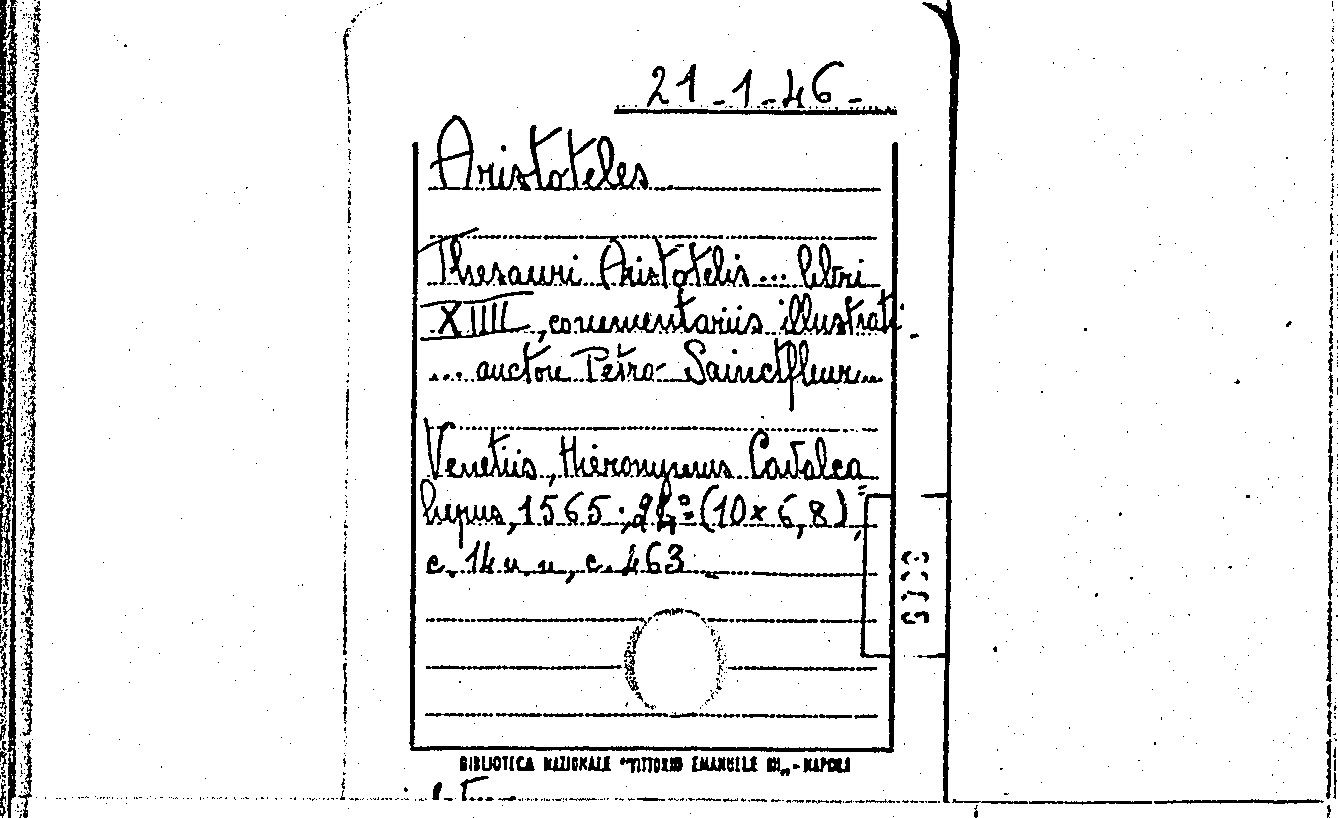 21-1-46-
Aristoteles
Thesauri Aristotelis... libri
XIIII, commentariis illustrati
... auctore Petro Sainctfleur...
Venetiis, Hieronymus Cavalca=
lupus, 1565. 24º (10x6,8),
c. 14 n. n., c. 463
BIBLIOTECA NAZIONALE "VITTORIO EMANUELE III„ - NAPOLI